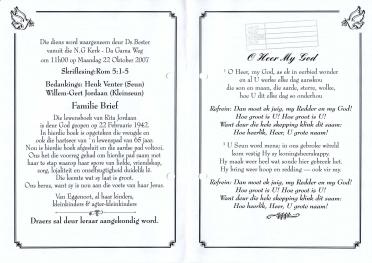 Die diens word waargeneem deur Ds Bester
vanuit die N.G Kerk - Da Gama Weg
om 11h00 op Maandag 22 Oktober 2007.
Skriflesing: Rom 5:1-5
Bedankings: Henk Venter (Seun)
Willem-Gert Jordaan (Kleinseun)
Familie Brief
Die lewensboek van Rita Jordaan
is deur God geopen op 22 Februarie 1942.
In hierdie boek is opgeteken die vreugde en
ook die hartseer van 'n lewenspad van 65 jaar.
Nou is hierdie boek afgesluit en die aardse pad voltooi.
Ons het die voorreg gehad om hierdie pad saam met
haar te stap waarop haar spore van liefde, vriendskap,
sorg, lojaliteit en onselfsugtigheid duidelik lê.
Die leemte wat sy laat is groot.
Ons berus, want sy is nou aan die voete van haar Jesus.
Van Eggenoot, al haar kinders,
kleinkinders & agter-kleinkinders
Draers sal deur leraar aangekondig word.
O Heer My God
1 O Heer, my God, as ek in eerbied wonder
en al U werke elke dag aanskou
die son en maan, die aarde, sterre, wolke,
hoe U dit elke dag so onderhou
Refrein: Dan moet ek juig, my Redder en my God!
Hoe groot is U! Hoe groot is U!
Want deur die hele skepping klink dit saam:
Hoe heerlik, Heer, U grote naam!
3 U Seun word mens; in ons gebroke wêreld
kom vestig Hy sy koningsheerskappy.
Hy maak weer heel wat sonde hier gebreek het.
Hy bring weer hoop en redding — ook vir my.
Refrein: Dan moet ek juig, my Redder en my God!
Hoe groot is U! Hoe groot is U!
Want deur die hele skepping klink dit saam:
Hoe heerlik, Heer, U grote naam!